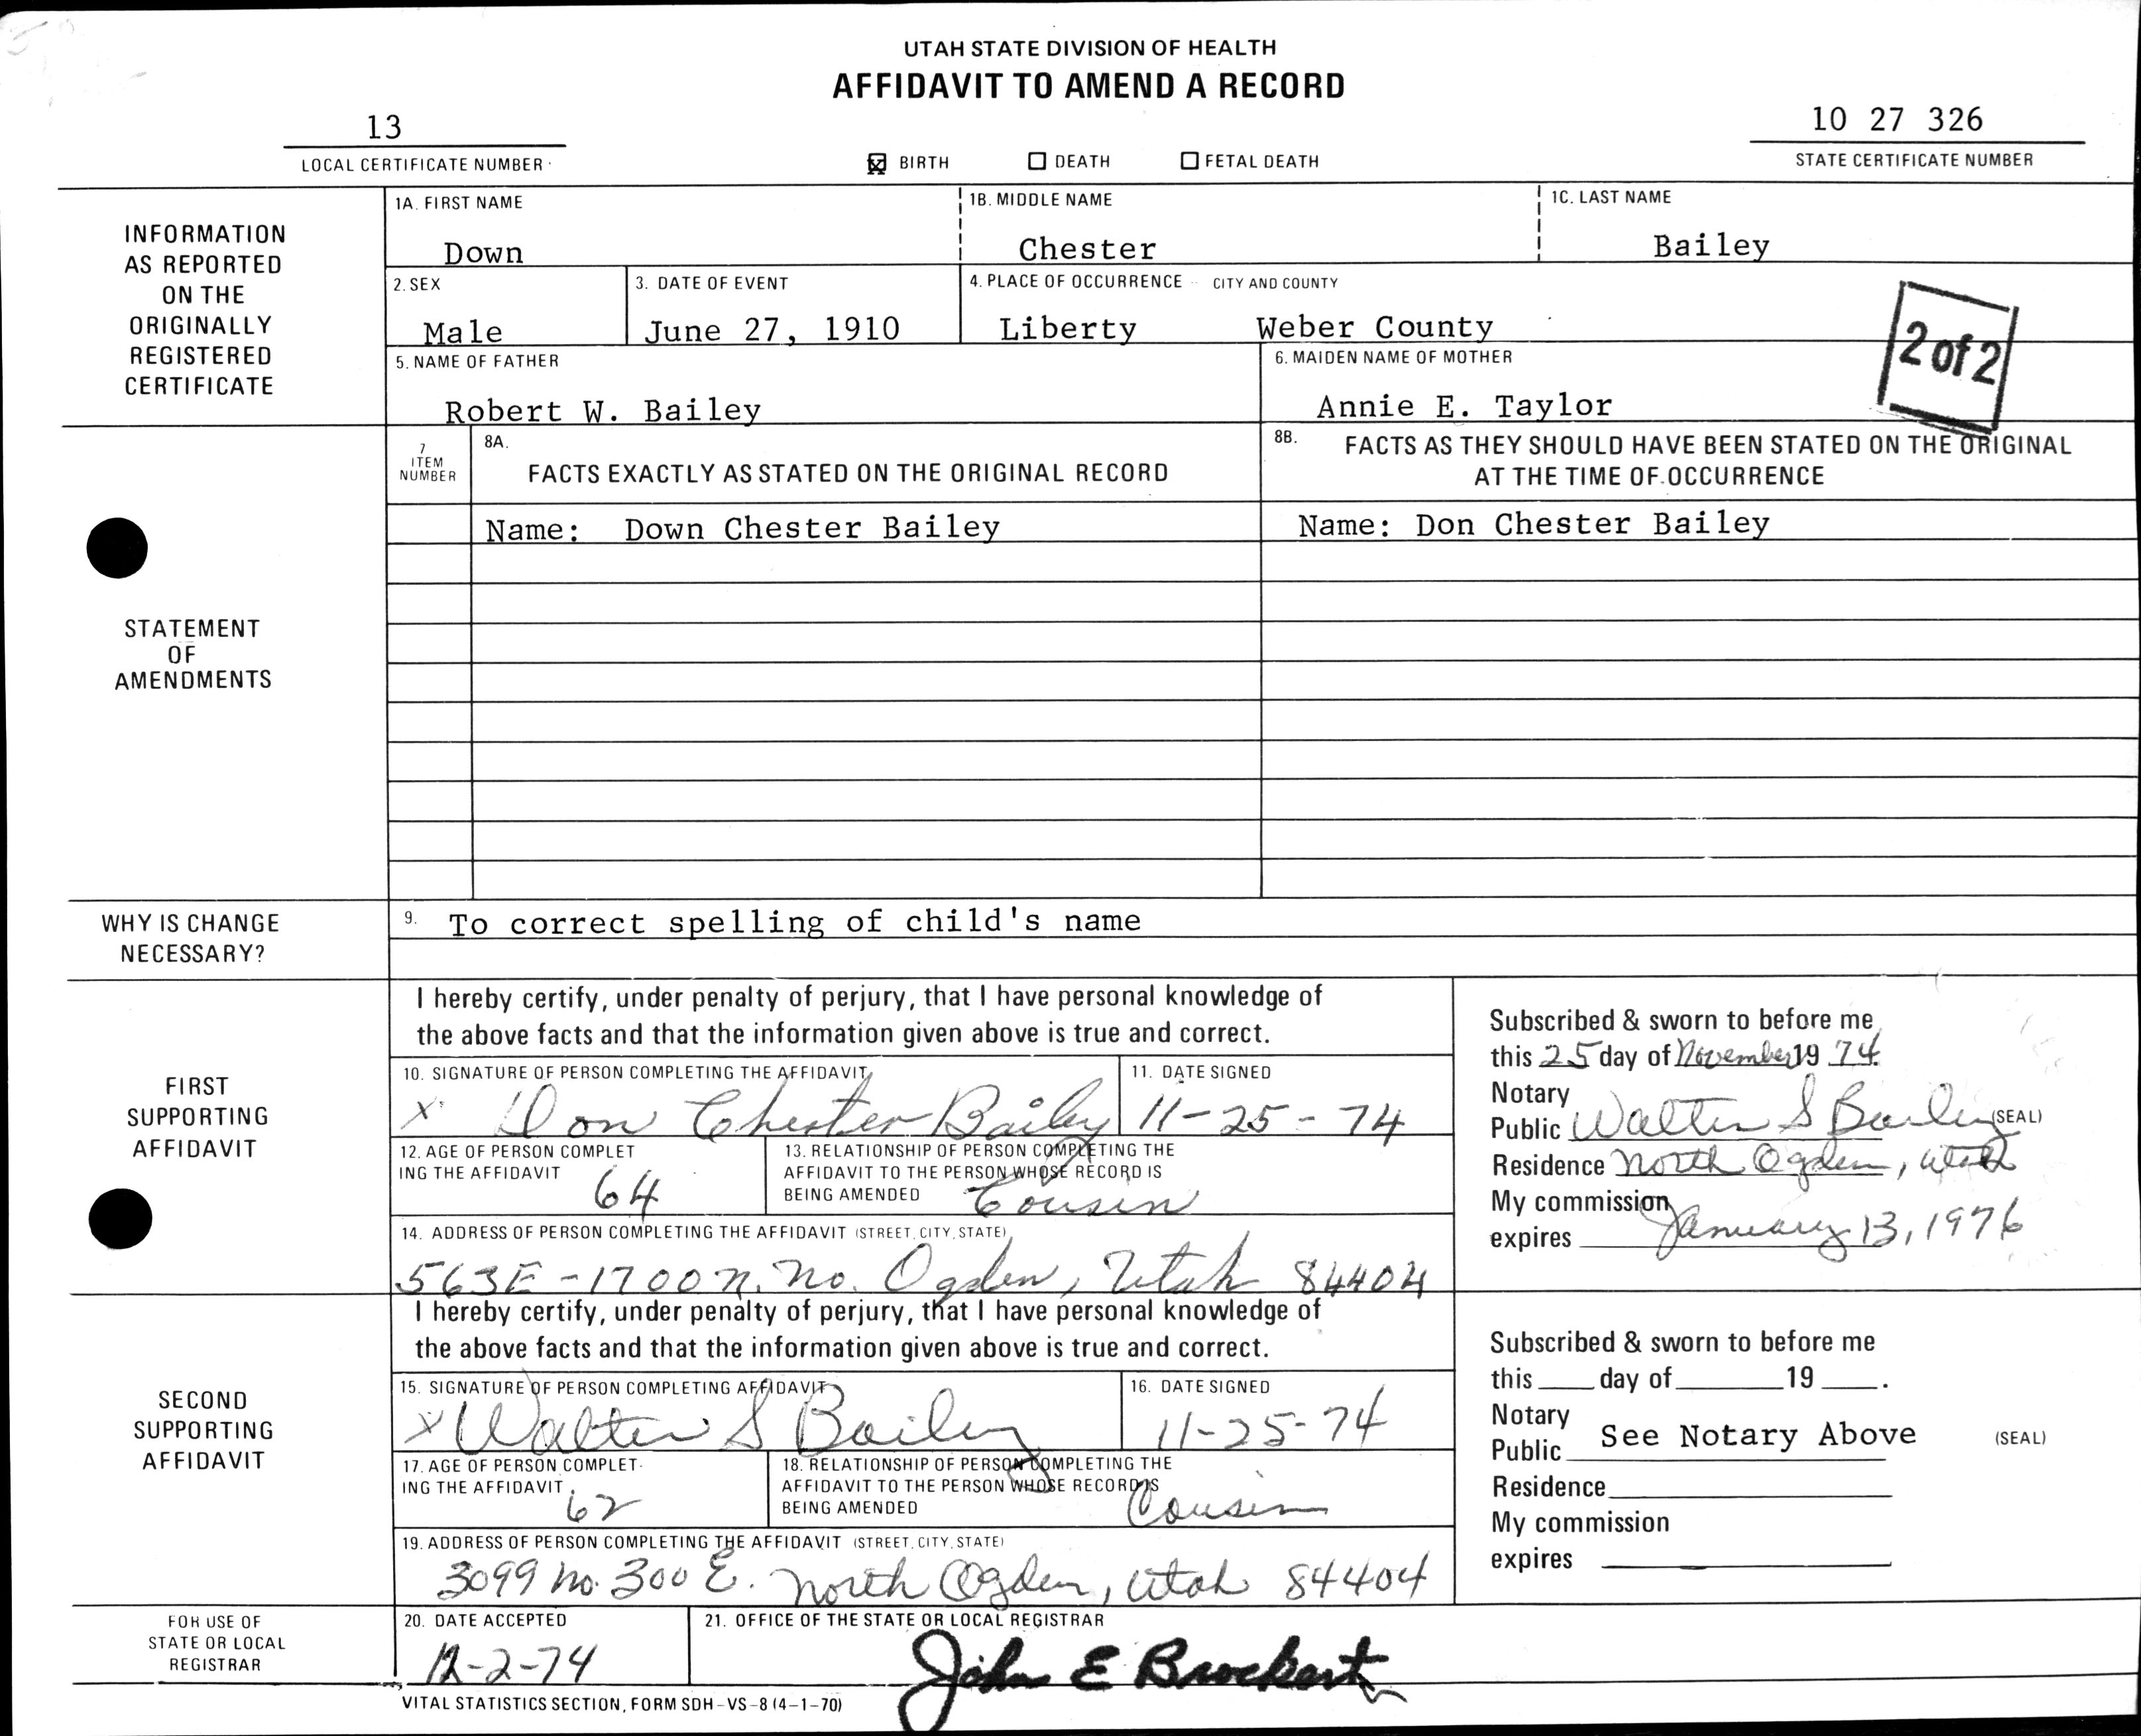 UTAH STATE DIVISION OF HEALTH
AFFIDAVIT TO AMEND A RECORD
13
LOCAL CERTIFICATE NUMBER
☒ BIRTH ☐ DEATH ☐ FETAL DEATH
10 27 326
STATE CERTIFICATE NUMBER
INFORMATION
AS REPORTED
ON THE
ORIGINALLY
REGISTERED
CERTIFICATE
1A. FIRST NAME 1B. MIDDLE NAME 1C. LAST NAME
Down Chester Bailey
2. SEX 3. DATE OF EVENT 4. PLACE OF OCCURRENCE -- CITY AND COUNTY
Male June 27, 1910 Liberty Weber County
2 of 2
5. NAME OF FATHER 6. MAIDEN NAME OF MOTHER
Robert W. Bailey Annie E. Taylor
STATEMENT
OF
AMENDMENTS
7
ITEM
NUMBER
8A.
FACTS EXACTLY AS STATED ON THE ORIGINAL RECORD
8B. FACTS AS THEY SHOULD HAVE BEEN STATED ON THE ORIGINAL
AT THE TIME OF OCCURRENCE
Name: Down Chester Bailey Name: Don Chester Bailey
WHY IS CHANGE
NECESSARY?
9. To correct spelling of child's name
FIRST
SUPPORTING
AFFIDAVIT
I hereby certify, under penalty of perjury, that I have personal knowledge of
the above facts and that the information given above is true and correct.
10. SIGNATURE OF PERSON COMPLETING THE AFFIDAVIT 11. DATE SIGNED
X Don Chester Bailey 11-25-74
12. AGE OF PERSON COMPLET
ING THE AFFIDAVIT 64
13. RELATIONSHIP OF PERSON COMPLETING THE
AFFIDAVIT TO THE PERSON WHOSE RECORD IS
BEING AMENDED Cousin
14. ADDRESS OF PERSON COMPLETING THE AFFIDAVIT (STREET, CITY, STATE)
563E-1700 N. No. Ogden, Utah 84404
Subscribed & sworn to before me
this 25 day of November 19 74.
Notary
Public Walter S Bailey (SEAL)
Residence North Ogden, Utah
My commission
expires January 13, 1976
SECOND
SUPPORTING
AFFIDAVIT
I hereby certify, under penalty of perjury, that I have personal knowledge of
the above facts and that the information given above is true and correct.
15. SIGNATURE OF PERSON COMPLETING AFFIDAVIT 16. DATE SIGNED
X Walter S Bailey 11-25-74
17. AGE OF PERSON COMPLET-
ING THE AFFIDAVIT 62
18. RELATIONSHIP OF PERSON COMPLETING THE
AFFIDAVIT TO THE PERSON WHOSE RECORD IS
BEING AMENDED Cousin
19. ADDRESS OF PERSON COMPLETING THE AFFIDAVIT (STREET, CITY, STATE)
3099 No. 300 E. North Ogden, Utah 84404
Subscribed & sworn to before me
this ____ day of ________ 19 ____.
Notary
Public See Notary Above (SEAL)
Residence
My commission
expires
FOR USE OF
STATE OR LOCAL
REGISTRAR
20. DATE ACCEPTED 21. OFFICE OF THE STATE OR LOCAL REGISTRAR
12-2-74 John E Brockert
VITAL STATISTICS SECTION, FORM SDH-VS-8 (4-1-70)